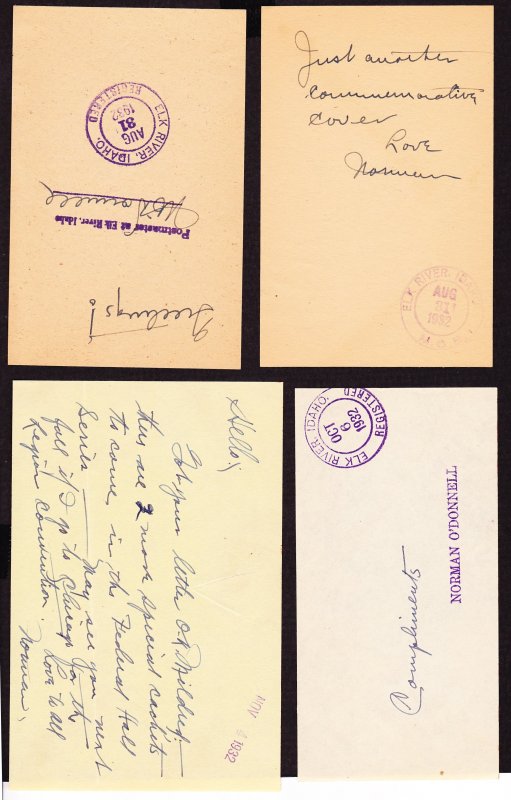 ELK RIVER, IDAHO.
AUG
31
1932
REGISTERED
Postmaster at Elk River, Idaho
Greetings!
Just another
commemorative
cover
Love
Norman
ELK RIVER, IDAHO
AUG
31
1932
M.O.B.
Hello;
Got your letter O.K. Mildred;
there are 2 more special cachets
to come in the Federal Hall
Series — May see you next
fall if I go to Chicago for the
Legion Convention.
Love to all
Norman.
NOV 4 1932
ELK RIVER, IDAHO.
OCT
6
1932
REGISTERED
Compliments
NORMAN O'DONNELL